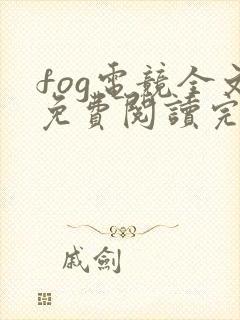 fog電競全文
免費閱讀完
戚劍